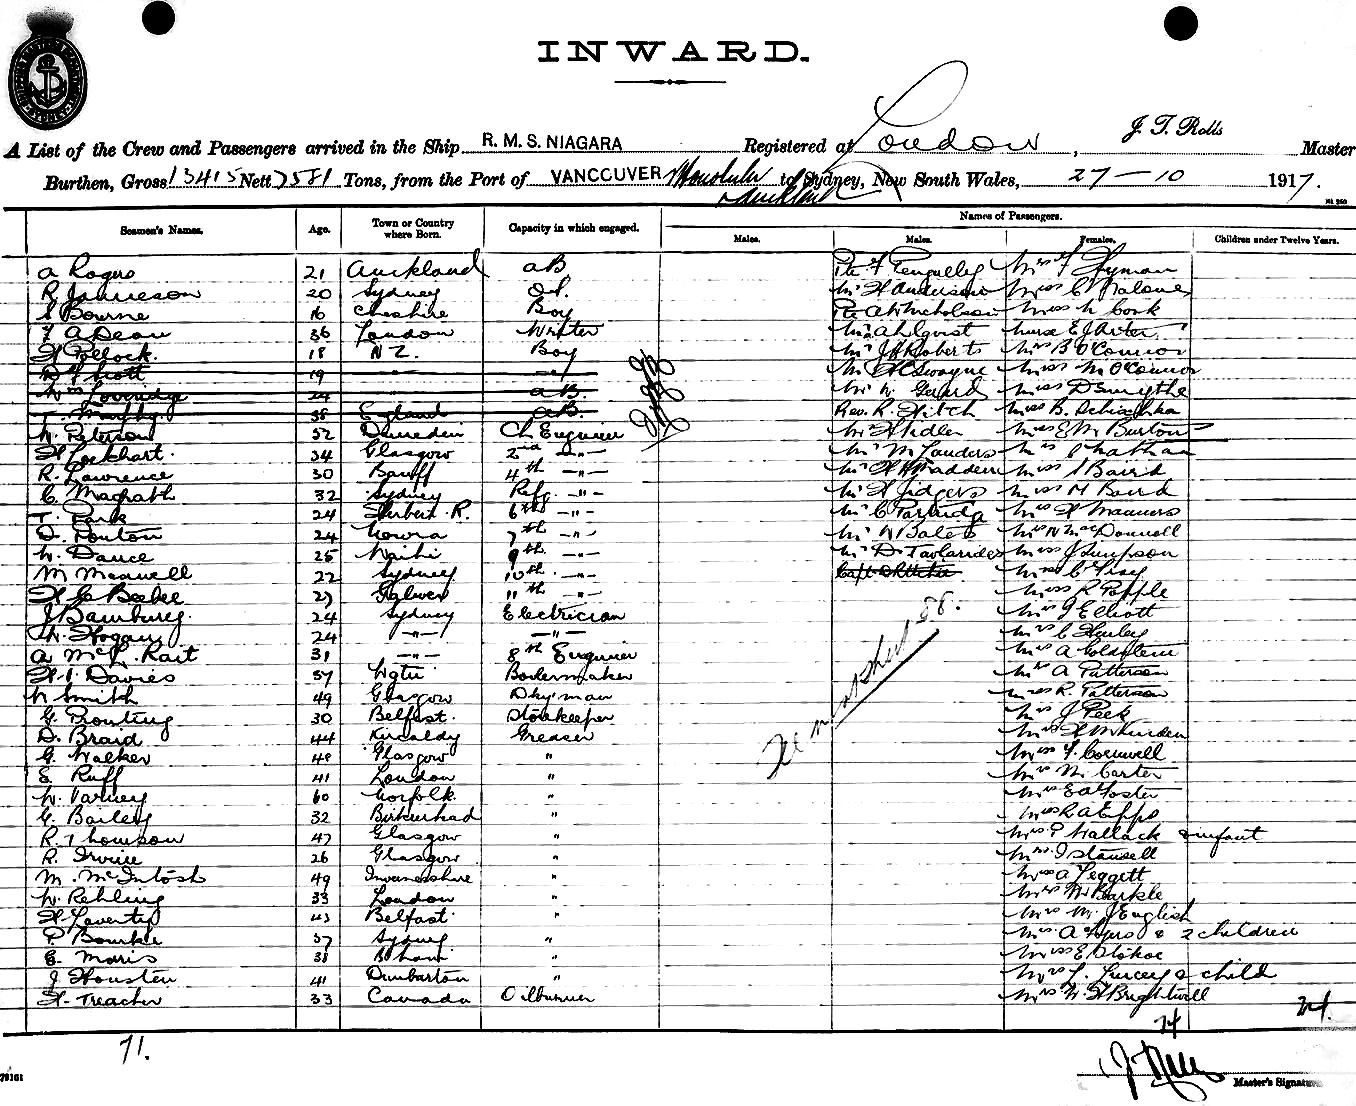 INWARD.
A List of the Crew and Passengers arrived in the Ship R. M. S. NIAGARA Registered at London, J. T. Rolls Master
Burthen, Gross 13415 Nett 7581 Tons, from the Port of VANCOUVER Honolulu Auckland to Sydney, New South Wales, 27-10 1917.
Names of Passengers.
Seamen's Names. Age. Town or Country where Born. Capacity in which engaged. Males. Males. Females. Children under Twelve Years.
A Rogers 21 Auckland AB Pte F Pengelley Mrs F Hyman
R Jamieson 20 Sydney O.S. Mr H Anderson Miss C Malone
S Bourne 16 Cheshire Boy Pte A W Nicholson Miss N Cook
F A Dean 36 London Writer Mr A Ahlqvist Nurse E J Arter
H Pollock. 18 N Z. Boy Mr J H Roberts Mrs B O'Connor
D F Scott 19 Mr H C Swayne Miss M O'Connor
Wm Loveridge 24 AB. Mr W Gerard Miss D Smythe
T. Murphy 38 England AB. Rev. R. Fitch Miss B. Schischka
W. Peterson 52 Dunedin Ch Engineer Mr H Hidler Mrs E M Burton
H Lockhart. 34 Glasgow 2nd -"- Mr M Landers Mrs P Nathan
R. Lawrence 30 Banff 4th -"- Mr H H Madden Miss S Baird
C. Magrath 32 Sydney Refg -"- Miss M Baird
T. Park 24 Herbert R. 6th -"- Mr C Partridge Mrs H Manners
D. Ponton 24 Cowra 7th -"- Mr N Bates Mrs N MacDonnell
W. Dance 25 Waihi 9th -"- Mr D. Tavlarides Miss J Simpson
M Maxwell 22 Sydney 10th -"- Mrs C Gray
H Js Beebee 27 11th -"- Miss R Papple
J Bamburg. 24 Sydney Electrician Mrs J Elliott
W. Hogan 24 -"- -"- Mrs C Hanley
A McL. Rait 31 -"- 8th Engineer Mrs A Goldstein
H. I. Davies 57 Wgtn Boilermaker Mrs A Patterson
W Smith 49 Glasgow Dkyman Miss R. Patterson
G. Prouting 30 Belfast. Storekeeper Mrs J Peek
D. Braid 44 Kirkcaldy Greaser
G. Walker 48 Glasgow " Miss F. Cornwell
E Ruff 41 London " Mrs M. Carter
W. Varney 60 Norfolk. " Mrs E A Foster
G. Bailey 32 Birkenhead " Mrs R A Epps
R Thomson 47 Glasgow " Mrs P Wallack & infant
R. Irvine 26 Glasgow " Mrs I Stansell
M. McIntosh 49 Invernesshire " Miss A Leggett
W. Rehling 33 London " Mrs M Barkle
H Laverty 43 Belfast. " Mrs M. J English
P Bourke 57 Sydney " Mrs A Ayers & 2 children
E. Morris 38 B'ham " Miss E Stokoe
J Housten 41 Dunbarton " Mrs L. Furcey & child
H. Treacher 33 Canada Oilburner Mrs W. H Brightwell
71. 74 24.
Master's Signature